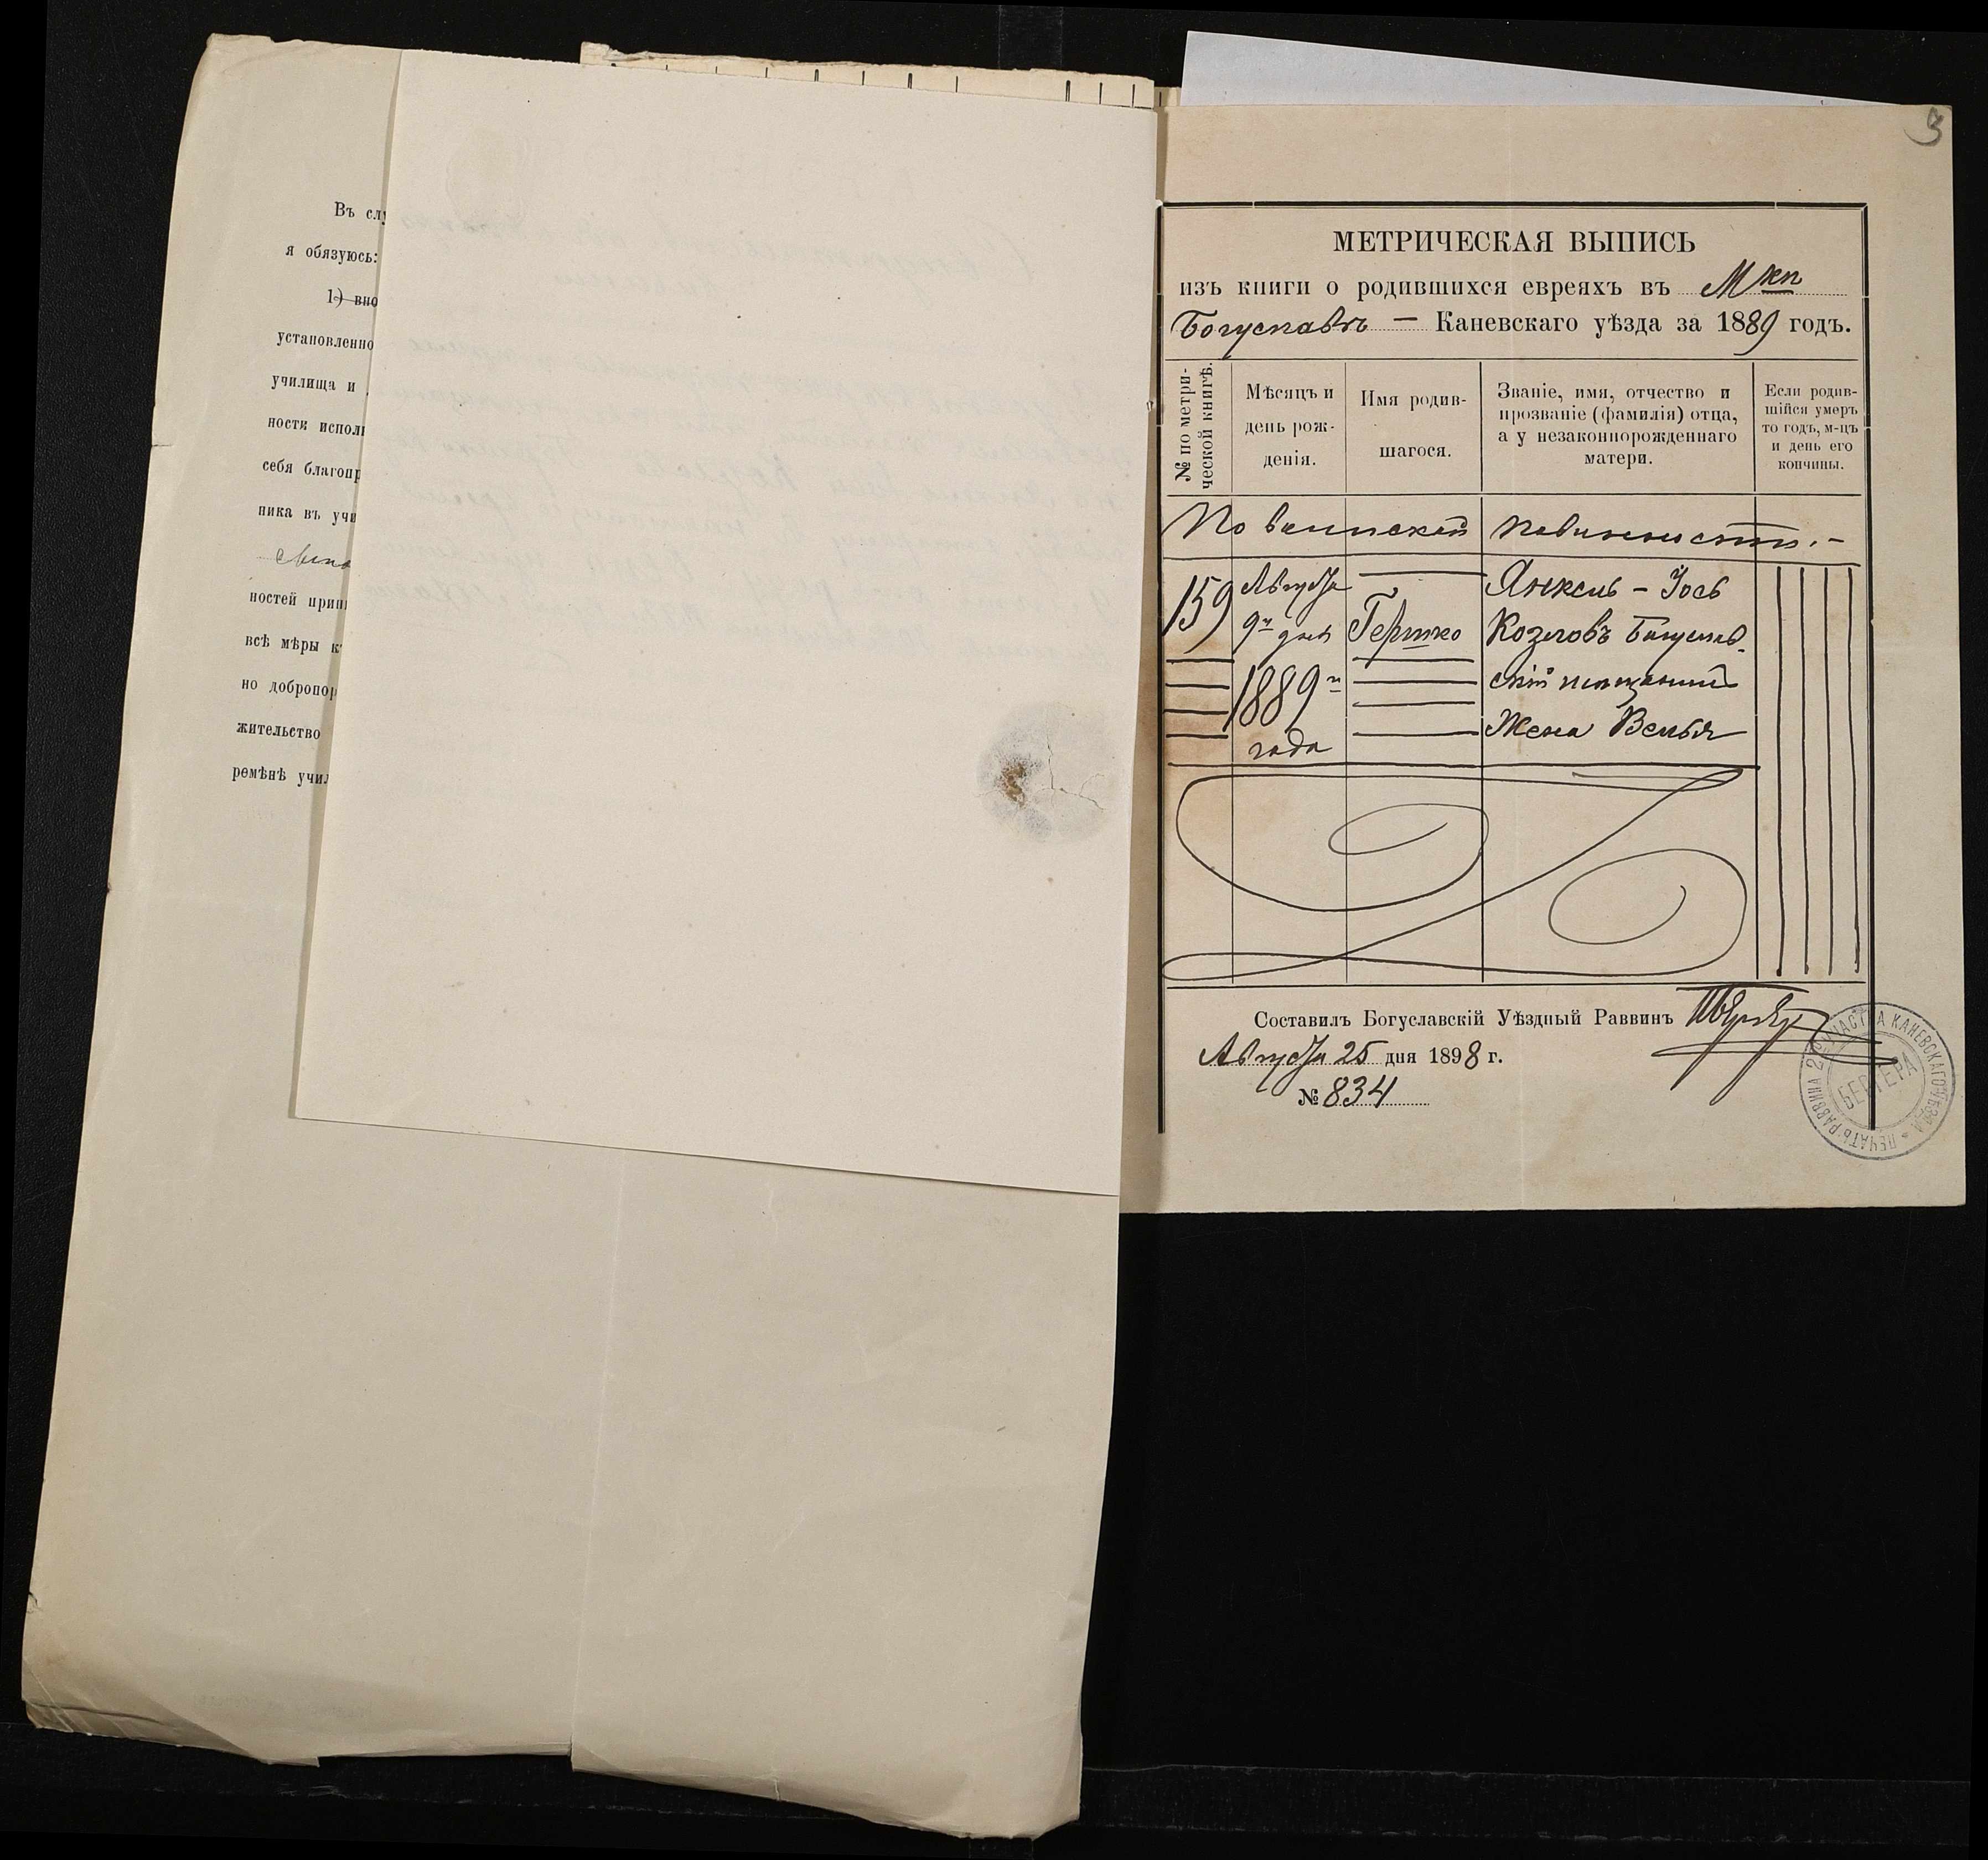 Въ слу
я обязуюсь:
1) вно
установленно
училища и
ности испол
себя благопр
ника въ учи
ностей прин
всѣ мѣры к
но добропор
жительство
ремѣнѣ учил
3
МЕТРИЧЕСКАЯ ВЫПИСЬ
изъ книги о родившихся евреяхъ въ Мкп
Богуславъ — Каневскаго уѣзда за 1889 годъ.
№ по метри-
ческой книгѣ.
Мѣсяцъ и
день рож-
денія.
Имя родив-
шагося.
Званіе, имя, отчество и
прозваніе (фамилія) отца,
а у незаконнорожденнаго
матери.
Если родив-
шійся умеръ
то годъ, м-цъ
и день его
кончины.
По воинской повинности.-
159
Августа
9го дня
1889го
года
Гершко
Янкель - Іосъ
Козловъ Богуслав-
скій мещанинъ
Жена Вельья
Составилъ Богуславскій Уѣздный Раввинъ
Августа 25 дня 1898 г.
№ 834
ПЕЧАТЬ РАВВИНА 2го УЧАСТКА КАНЕВСКАГО УѢЗДА
БЕРГЕРА